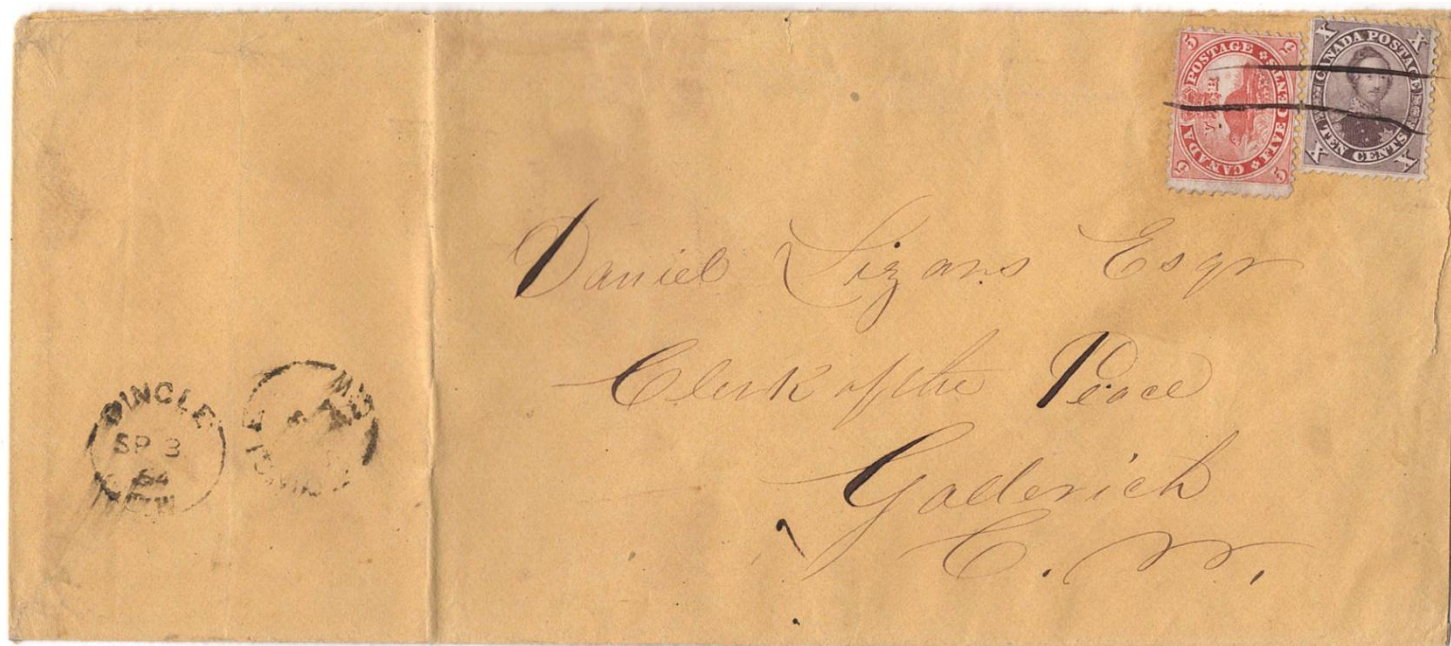 X CANADA POSTAGE X
X TEN CENTS X
5 CANADA POSTAGE 5
5 FIVE CENTS 5
Daniel Lizars Esqr
Clerk of the Peace
Goderich
C. W.
DINGLE
SP 3
64